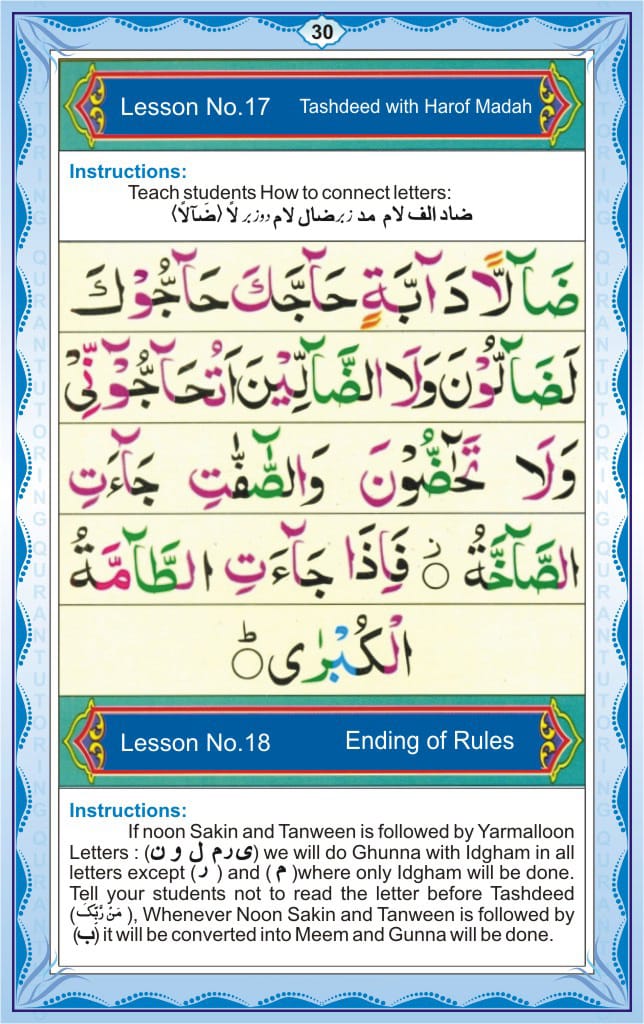 30
Lesson No.17 Tashdeed with Harof Madah
Instructions:
Teach students How to connect letters:
ضاد الف لام مد زبر ضال لام دوزبر لاً (ضَآلًا)
ضَآلًّا دَآبَّةٍ حَآجَّكَ حَآجُّوْكَ
لَضَآلُّوْنَ وَلَا الضَّآلِّيْنَ اَتُحَآجُّوْٓنِّىْ
وَلَا تَحٰٓضُّوْنَ وَالصّٰٓفّٰتِ جَآءَتِ
الصَّآخَّةُ ۞ فَاِذَا جَآءَتِ الطَّآمَّةُ
الْكُبْرٰى ۞
Lesson No.18 Ending of Rules
Instructions:
If noon Sakin and Tanween is followed by Yarmalloon
Letters : (ی ر م ل و ن) we will do Ghunna with Idgham in all
letters except ( ر ) and ( م )where only Idgham will be done.
Tell your students not to read the letter before Tashdeed
(مَنْ رَّبِّكَ ), Whenever Noon Sakin and Tanween is followed by
(ب) it will be converted into Meem and Gunna will be done.